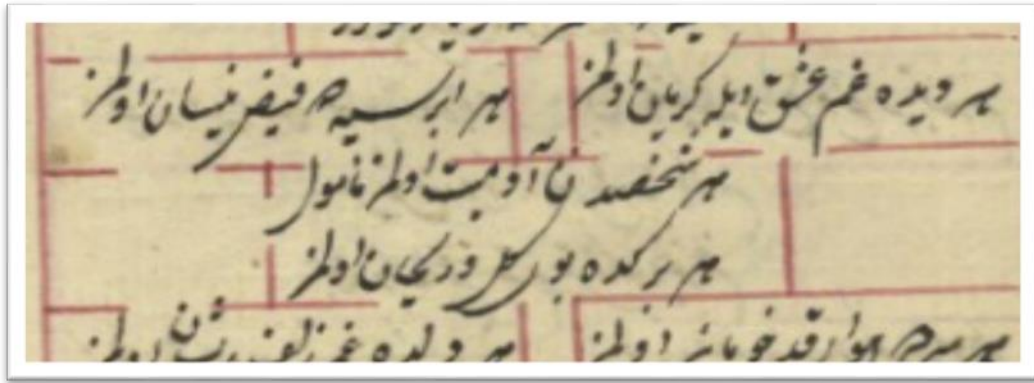 هر دیده غم عشق ایله کریان اولمز
هر ابر سیه فیض نیسان اولمز
هر شخصدن آدمیت اولمز مأمول
هر برکده بوی کل و ریحان اولمز
هر قد خوبانه اولمز
هر دلده غم زلف پریشان اولمز